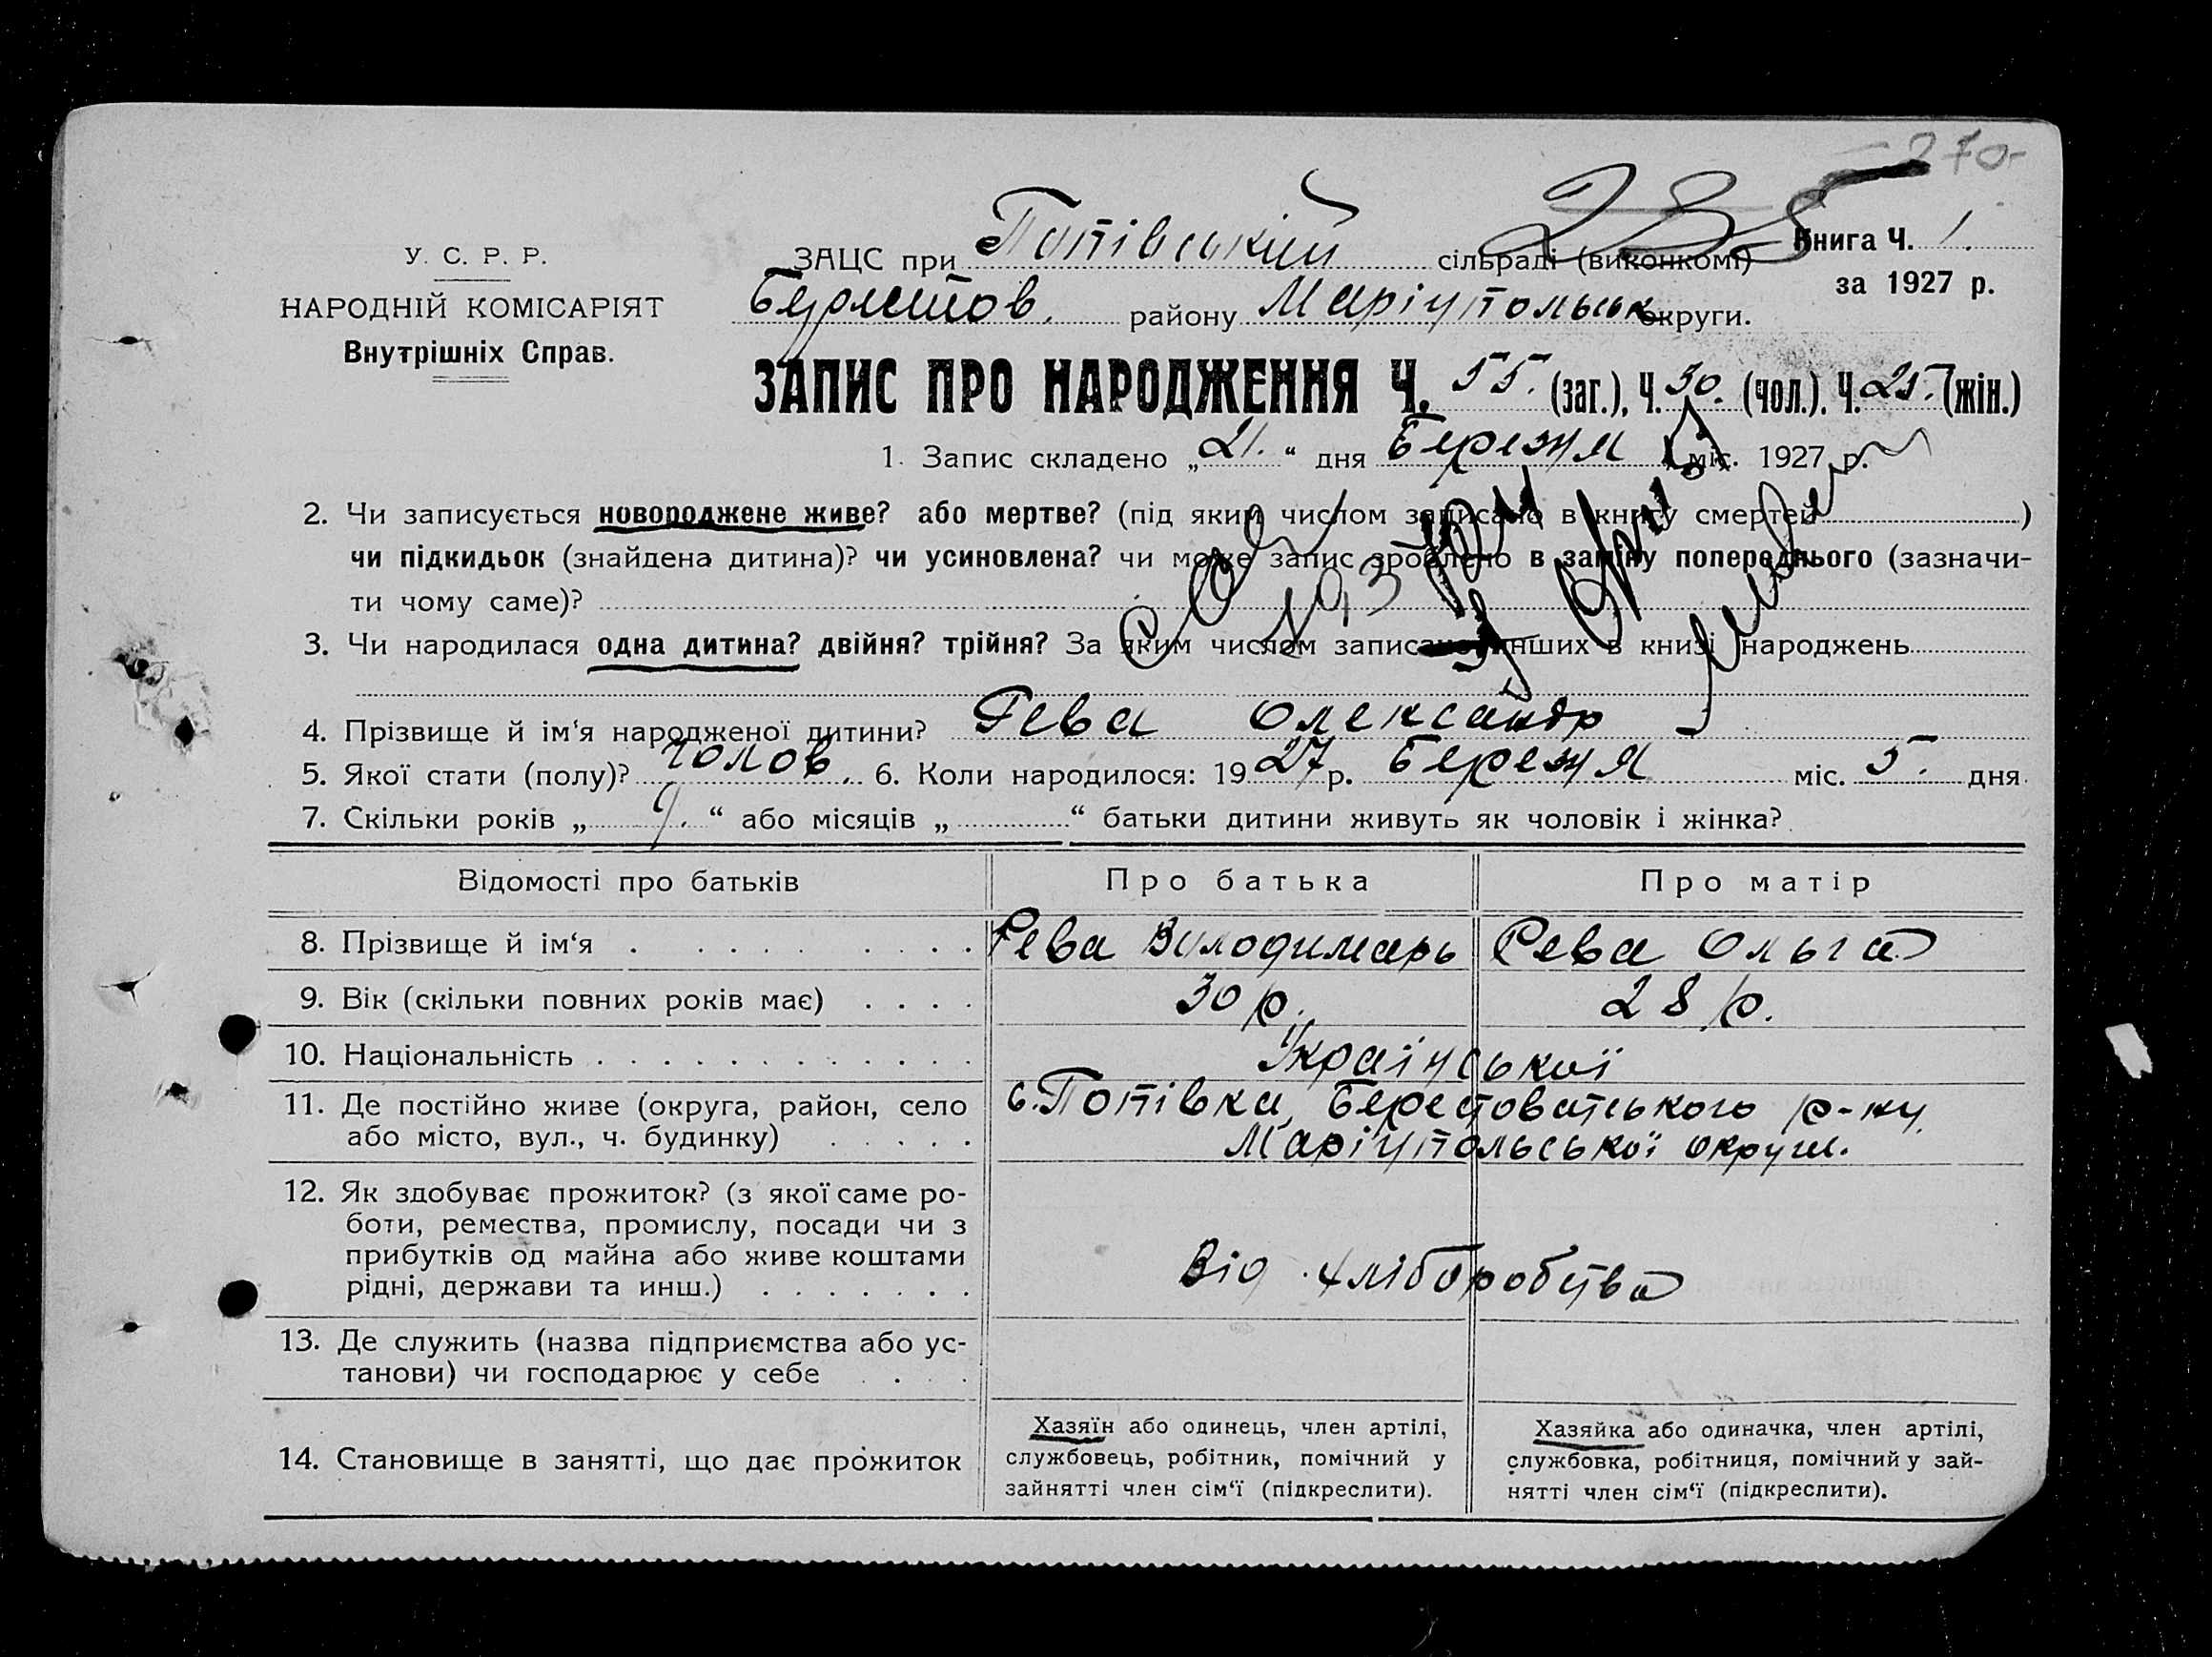 270
235
У. С. Р. Р.
НАРОДНІЙ КОМІСАРІЯТ
Внутрішніх Справ.
ЗАЦС при Попівській сільраді (виконкомі)
Книга Ч. 1.
за 1927 р.
району Маріупольськ округи.
ЗАПИС ПРО НАРОДЖЕННЯ Ч. 55. (заг.), Ч. 30. (чол.). Ч. 25. (жін.)
1. Запис складено „21.“ дня Березня міс. 1927 р.
2. Чи записується новороджене живе? або мертве? (під яким числом записано в книгу смертей )
чи підкидьок (знайдена дитина)? чи усиновлена? чи може запис зроблено в заміну попереднього (зазначи-
ти чому саме)?
3. Чи народилася одна дитина? двійня? трійня? За яким числом записано инших в книзі народжень
4. Прізвище й ім‘я народженої дитини? Рева Олександр
5. Якої стати (полу)? чолов. 6. Коли народилося: 1927 р. Березня міс. 5. дня
7. Скільки років „9.“ або місяців „ “ батьки дитини живуть як чоловік і жінка?
Відомості про батьків
Про батька
Про матір
8. Прізвище й ім‘я . . . . . . . . .
Рева Володимарь
Рева Ольга
9. Вік (скільки повних років має) . . . .
30 р.
28 р.
10. Національність . . . . . . . . . . . .
Української
11. Де постійно живе (округа, район, село
або місто, вул., ч. будинку) . . . . .
с. Попівка, Берестоватського р-ну
Маріупольської округи.
12. Як здобуває прожиток? (з якої саме ро-
боти, ремества, промислу, посади чи з
прибутків од майна або живе коштами
рідні, держави та инш.) . . . . . . .
Від хліборобства
13. Де служить (назва підприємства або ус-
танови) чи господарює у себе . . . .
14. Становище в занятті, що дає прожиток
Хазяїн або одинець, член артілі,
службовець, робітник, помічний у
зайнятті член сім‘ї (підкреслити).
Хазяйка або одиначка, член артілі,
службовка, робітниця, помічний у зай-
нятті член сім‘ї (підкреслити).